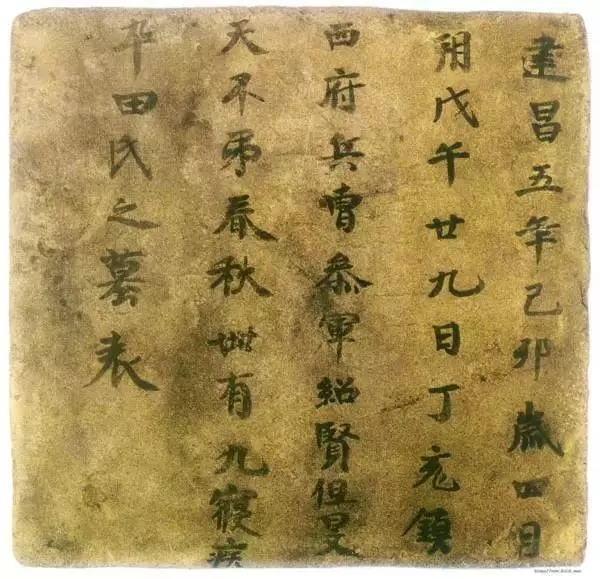 建昌五年己卯歲四月
朔戊午廿九日丁亥鎮
西府兵曹叅軍紹賢但旻
天不弔春秋卌有九寑疾
卒田氏之墓表